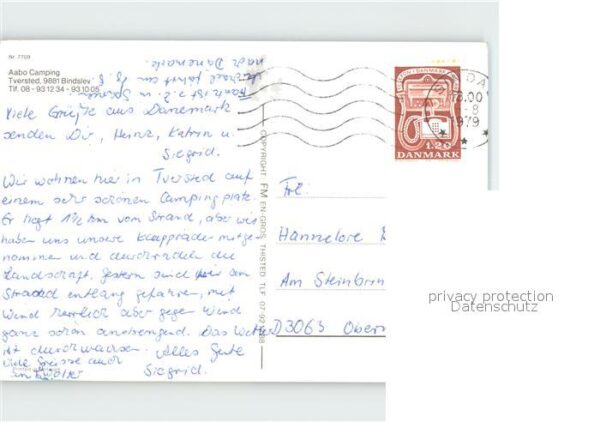 Nr. 7709
Aabo Camping
Tversted, 9881 Bindslev
Tlf. 08 - 93 12 34 - 93 10 05
nach Dänemark.
Viele Grüße aus Dänemark
senden Dir, Heinz, Katrin u.
Siegrid.
Wir wohnen hier in Tversted auf
einem sehr schönen Campingplatz.
Er liegt 1½ km vom Strand, aber wir
haben uns unsere Klappräder mitge-
nommen und durchradeln die
Landschaft. Gestern sind wir am
Strand entlang gefahren, mit
Wind herrlich aber gegen Wind
ganz schön anstrengend. Das Wetter
ist durchwachsen. Alles Gute
Viele Grüsse auch
Siegrid.
COPYRIGHT FM EN-GROS THISTED TLF. 07-92
DANMARK
1.20
18.00
1979
Frl.
Hannelore
Am Steinbrin
D 3063 Obern
privacy protection
Datenschutz